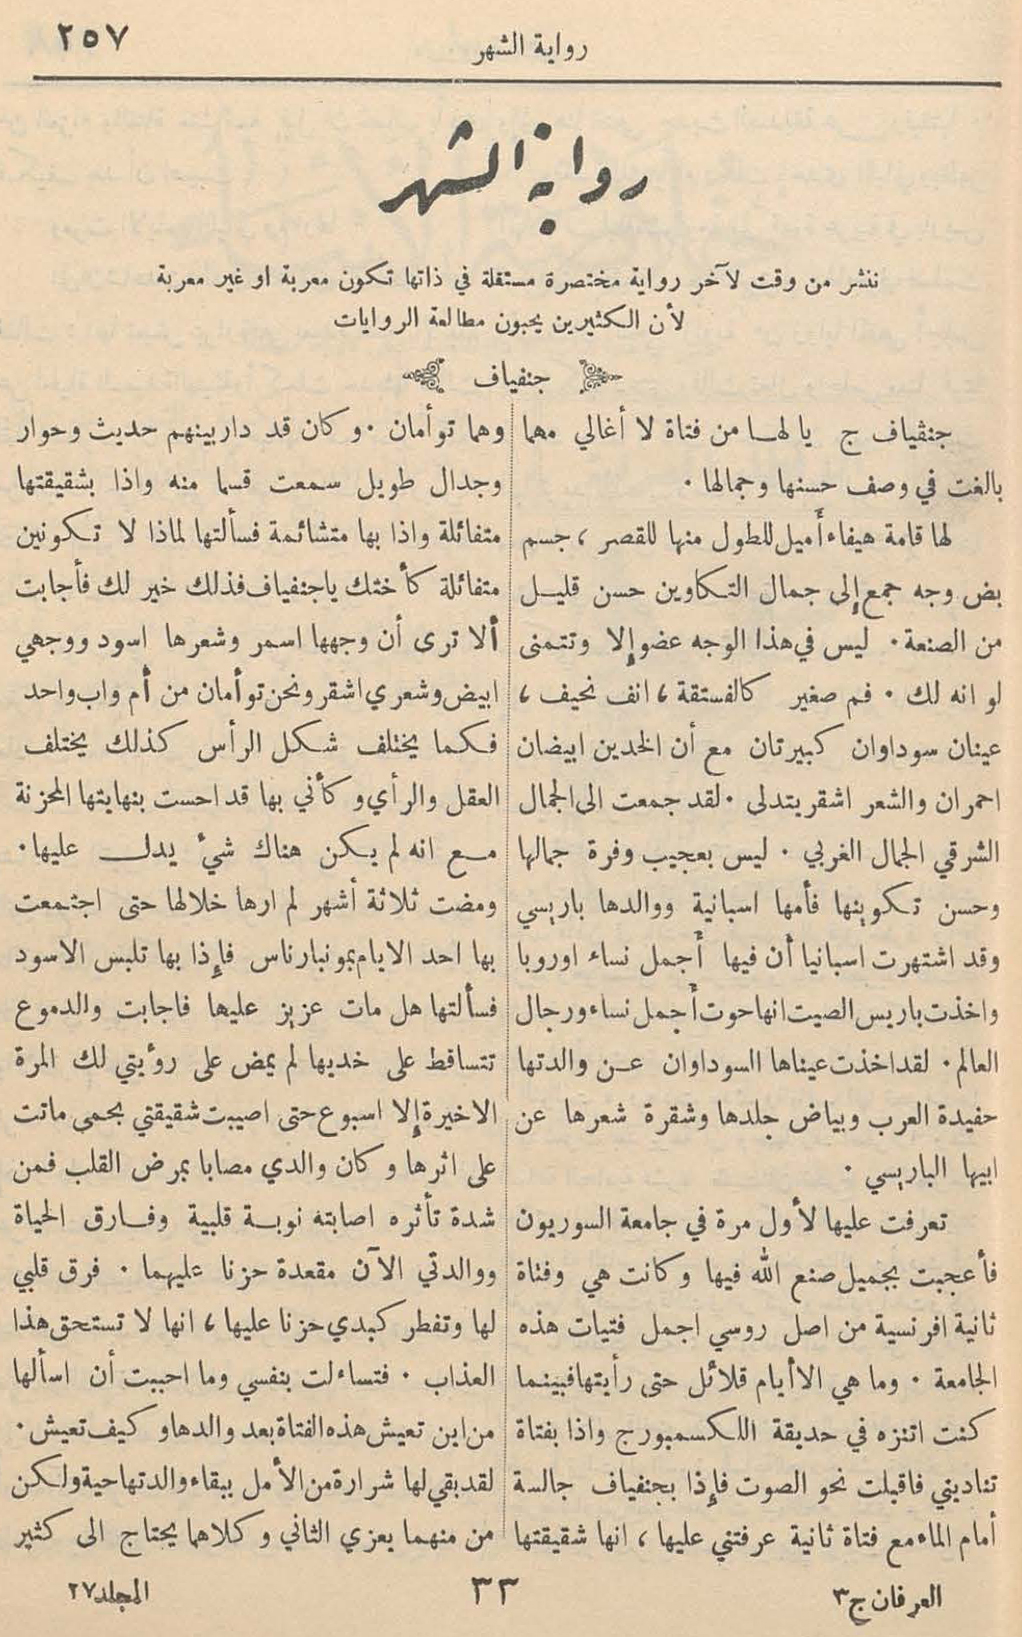 رواية الشهر
٢٥٧
رواية الشهر
ننشر من وقت لآخر رواية مختصرة مستقلة في ذاتها تكون معربة او غير معربة
لأن الكثيرين يحبون مطالعة الروايات
جنفياف
جنڤياف ج يا لها من فتاة لا أغالي مهما
بالغت في وصف حسنها وجمالها .
لها قامة هيفاء أميل للطول منها للقصر ، جسم
بض وجه جمع إلى جمال التكاوين حسن قليل
من الصنعة . ليس في هذا الوجه عضو إلا وتتمنى
لو انه لك . فم صغير كالفستقة ، انف نحيف ،
عينان سوداوان كبيرتان مع أن الخدين ابيضان
احمران والشعر اشقر يتدلى . لقد جمعت الى الجمال
الشرقي الجمال الغربي . ليس بعجيب وفرة جمالها
وحسن تكوينها فأمها اسبانية ووالدها باريسي
وقد اشتهرت اسبانيا أن فيها أجمل نساء اوروبا
واخذت باريس الصيت انها حوت أجمل نساء ورجال
العالم . لقد اخذت عيناها السوداوان عن والدتها
حفيدة العرب وبياض جلدها وشقرة شعرها عن
ابيها الباريسي .
تعرفت عليها لأول مرة في جامعة السوربون
فأعجبت بجميل صنع الله فيها وكانت هي وفتاة
ثانية افرنسية من اصل روسي اجمل فتيات هذه
الجامعة . وما هي الا أيام قلائل حتى رأيتها فبينما
كنت اتنزه في حديقة اللكسمبورج واذا بفتاة
تناديني فاقبلت نحو الصوت فإذا بجنفياف جالسة
أمام الماء مع فتاة ثانية عرفتني عليها ، انها شقيقتها
وهما توأمان . وكان قد دار بينهم حديث وحوار
وجدال طويل سمعت قسما منه واذا بشقيقتها
متفائلة واذا بها متشائمة فسألتها لماذا لا تكونين
متفائلة كأختك ياجنفياف فذلك خير لك فأجابت
ألا ترى أن وجهها اسمر وشعرها اسود ووجهي
ابيض وشعري اشقر ونحن توأمان من أم واب واحد
فكما يختلف شكل الرأس كذلك يختلف
العقل والرأي وكأني بها قد احست بنهايتها المحزنة
مع انه لم يكن هناك شيء يدل عليها .
ومضت ثلاثة أشهر لم ارها خلالها حتى اجتمعت
بها احد الايام بمونبارناس فإذا بها تلبس الاسود
فسألتها هل مات عزيز عليها فاجابت والدموع
تتساقط على خديها لم يمض على رؤيتي لك المرة
الاخيرة إلا اسبوع حتى اصيبت شقيقتي بحمى ماتت
على اثرها وكان والدي مصابا بمرض القلب فمن
شدة تأثره اصابته نوبة قلبية وفارق الحياة
ووالدتي الآن مقعدة حزنا عليهما . فرق قلبي
لها وتفطر كبدي حزنا عليها ، انها لا تستحق هذا
العذاب . فتساءلت بنفسي وما احببت أن اسألها
من اين تعيش هذه الفتاة بعد والدها وكيف تعيش .
لقد بقي لها شرارة من الأمل ببقاء والدتها حية ولكن
من منهما يعزي الثاني وكلاهما يحتاج الى كثير
العرفان ج٣
٣٣
المجلد ٢٧